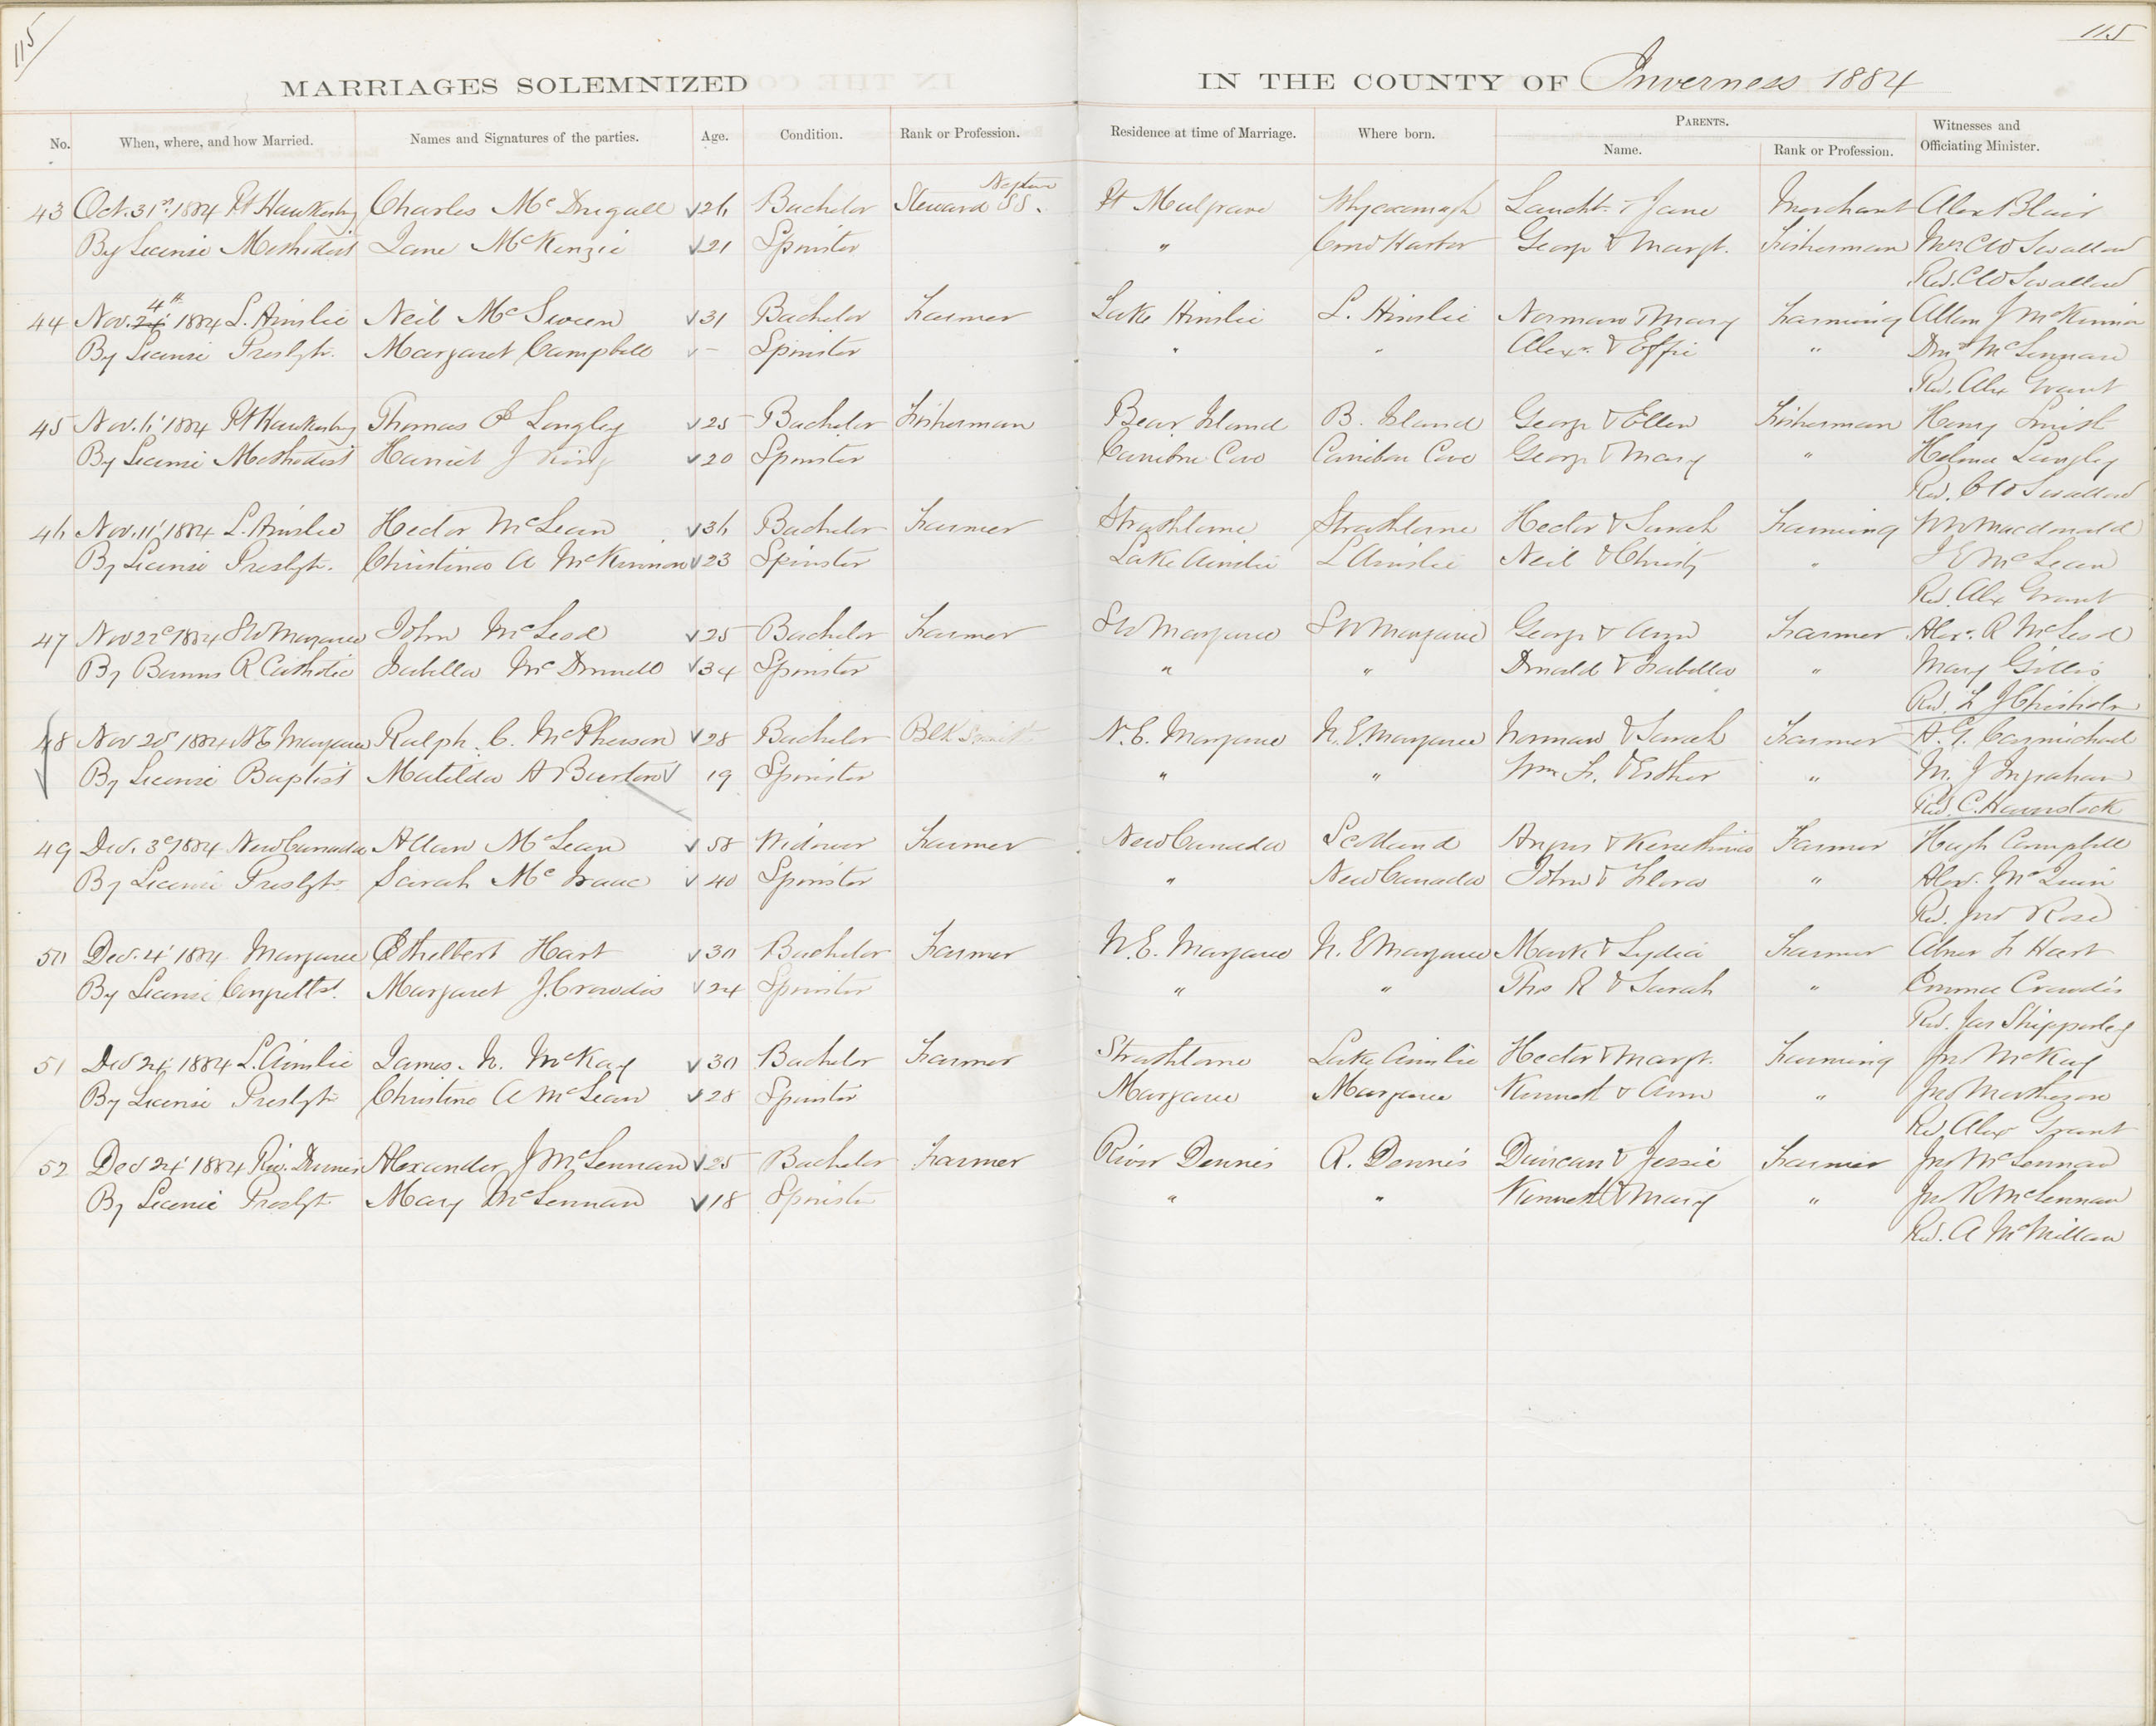 115
115
MARRIAGES SOLEMNIZED IN THE COUNTY OF Inverness 1884
No. When, where, and how Married. Names and Signatures of the parties. Age. Condition. Rank or Profession. Residence at time of Marriage. Where born. PARENTS. Name. Rank or Profession. Witnesses and Officiating Minister.
43 Oct. 31st 1884 Pt Hawkesbry Charles McDugall 26 Bachelor Steward SS. Neptune Pt Mulgrave Whycocomagh Laucht. & Jane Merchant Alex Blair
By License Methodist Jane McKenzie 21 Spinster " Harbor George & Margt. Fisherman Mrs CW Swallow
Rev. CW Swallow
44 Nov. 4th 1884 L. Ainslie Neil McSween 31 Bachelor Farmer Lake Ainslie L. Ainslie Norman & Mary Farming Allan J McKinnon
By License Presbytr. Margaret Campbell - Spinster " " Alexr. & Effie " McLennan
Rev. Alex Grant
45 Nov. 11 1884 Pt Hawkesbry Thomas Langley 25 Bachelor Fisherman Bear Island B. Island George & Ellen Fisherman Henry
By License Methodist Harriet J King 20 Spinster Caribou Cove Caribou Cove George & Mary " Langley
Rev. CW Swallow
46 Nov. 11 1884 L. Ainslie Hector McLean 36 Bachelor Farmer Strathlorne Strathlorne Hector & Sarah Farming Macdonald
By License Presbyt. Christina A McKinnon 23 Spinster Lake Ainslie L Ainslie Neil & Christy " McLean
Rev. Alex Grant
47 Nov 22d 1884 SW Margaree John McLeod 25 Bachelor Farmer SW Margaree SW Margaree George & Ann Farmer Alexr. R McLeod
By Banns R Catholic Isabella McDonnell 34 Spinster " " Donald & Isabella " Mary Gillis
Rev. J Chisholm
48 Nov 25 1884 N E Margaree Ralph. C. McPherson 28 Bachelor Blk Smith N. E. Margaree N. E. Margaree Norman & Sarah Farmer A. G. Carmichael
By License Baptist Matilda A Burton 19 Spinster " " Wm F. & Esther " M. J Ingraham
Rev. C. Haunstock
49 Dec. 3d 1884 New Canada Allan McLean 58 Widower Farmer New Canada Scotland Angus & Farmer Hugh Campbell
By License Presbyt Sarah McIsaac 40 Spinster " New Canada John & Flora " Alex.
Rev. Jno Rose
50 Dec. 4 1884 Margaree Ethelbert Hart 30 Bachelor Farmer N. E. Margaree N. E Margaree Mark & Lydia Farmer Abner F Hart
By License Congrettl. Margaret J. Crowdis 24 Spinster " " Thos R & Sarah " Emma Crowdis
Rev. Jas Shipperley
51 Dec 24 1884 L. Ainslie James. N. McKay 30 Bachelor Farmer Strathlorne Lake Ainslie Hector & Margt. Farming Jno McKay
By License Presbyt Christina A McLean 28 Spinster Margaree Margaree Kenneth & Ann " Jno Matheson
Rev. Alex Grant
52 Dec 24 1884 Riv. Dennis Alexander J McLennan 25 Bachelor Farmer River Dennis R. Dennis Duncan & Jessie Farmer Jno McLennan
By License Presbyt Mary McLennan 18 Spinster " " Kenneth & Mary " Jno R McLennan
Rev. A McMillan